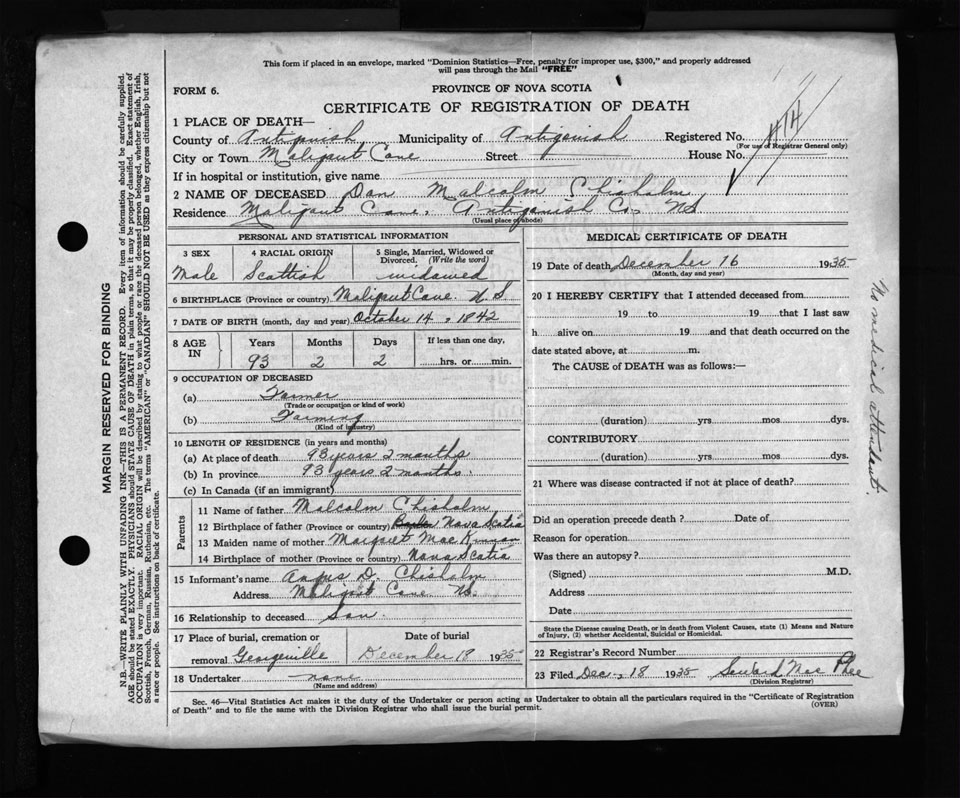 This form if placed in an envelope, marked "Dominion Statistics—Free, penalty for improper use, $300," and properly addressed
will pass through the Mail "FREE"
FORM 6.
PROVINCE OF NOVA SCOTIA
CERTIFICATE OF REGISTRATION OF DEATH
1 PLACE OF DEATH—
County of Antigonish Municipality of Antigonish Registered No. 414
(For use of Registrar General only)
City or Town Malignut Cove Street House No.
If in hospital or institution, give name
2 NAME OF DECEASED Dan Malcolm Chisholm
Residence Malignut Cove, Antigonish Co. NS
(Usual place of abode)
PERSONAL AND STATISTICAL INFORMATION
3 SEX 4 RACIAL ORIGIN 5 Single, Married, Widowed or
Divorced. (Write the word)
Male Scottish widowed
6 BIRTHPLACE (Province or country) Malignut Cove. N S
7 DATE OF BIRTH (month, day and year) October 14, 1842
8 AGE IN Years Months Days If less than one day,
93 2 2 hrs. or min.
9 OCCUPATION OF DECEASED
(a) Farmer
(Trade or occupation or kind of work)
(b) Farming
(Kind of industry)
10 LENGTH OF RESIDENCE (in years and months)
(a) At place of death 93 years 2 months
(b) In province 93 years 2 months.
(c) In Canada (if an immigrant)
Parents
11 Name of father Malcolm Chisholm
12 Birthplace of father (Province or country) Nova Scotia
13 Maiden name of mother Margaret MacKinnon
14 Birthplace of mother (Province or country) Nova Scotia
15 Informant's name Angus D. Chisholm
Address Malignut Cove NS.
16 Relationship to deceased Son.
17 Place of burial, cremation or Date of burial
removal Georgeville December 18 1935
18 Undertaker none
(Name and address)
MEDICAL CERTIFICATE OF DEATH
19 Date of death December 16 1935
(Month, day and year)
20 I HEREBY CERTIFY that I attended deceased from
19 to 19 that I last saw
h alive on 19 and that death occurred on the
date stated above, at m.
The CAUSE of DEATH was as follows:—
(duration) yrs mos dys.
CONTRIBUTORY
(duration) yrs mos dys.
21 Where was disease contracted if not at place of death?
Did an operation precede death? Date of
Reason for operation
Was there an autopsy?
(Signed) M.D.
Address
Date
State the Disease causing Death, or in death from Violent Causes, state (1) Means and Nature
of Injury, (2) whether Accidental, Suicidal or Homicidal.
22 Registrar's Record Number
23 Filed Dec., 18 1935 MacPhee
(Division Registrar)
Sec. 46—Vital Statistics Act makes it the duty of the Undertaker or person acting as Undertaker to obtain all the particulars required in the "Certificate of Registration
of Death" and to file the same with the Division Registrar who shall issue the burial permit.
(OVER)
No medical attendant
MARGIN RESERVED FOR BINDING
N.B.—WRITE PLAINLY WITH UNFADING INK—THIS IS A PERMANENT RECORD. Every item of information should be carefully supplied.
AGE should be stated EXACTLY. PHYSICIANS should STATE CAUSE OF DEATH in plain terms, so that it may be properly classified. Exact statement of
OCCUPATION is very important. RACIAL ORIGIN will be described by stating to what people or race the deceased person belonged, whether English, Irish,
Scottish, French, German, Russian, Ruthenian, etc. The terms "AMERICAN" or "CANADIAN" SHOULD NOT BE USED as they express citizenship but not
a race or people. See instructions on back of certificate.